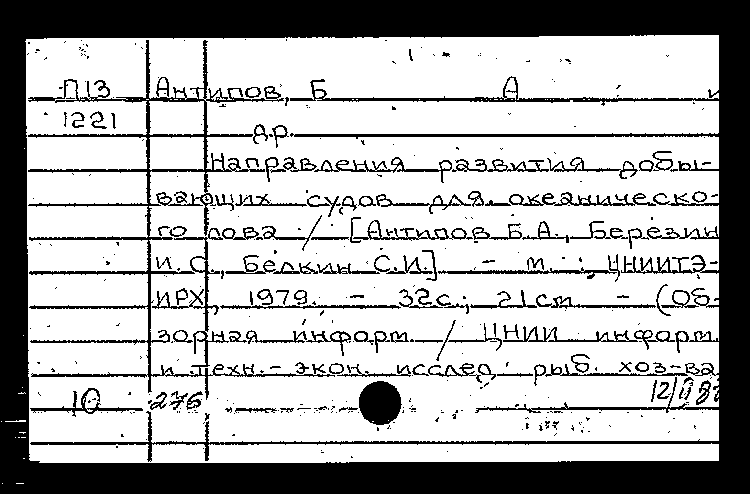 П13 Антипов, Б А и
1221 др.
Направления развития добы-
вающих судов для океаническо-
го лова / [Антипов Б.А., Березин
И. С., Белкин С.И.] - м. : ЦНИИТЭ-
ИРХ, 1979. - 32с.; 21см - (Об-
зорная информ. / ЦНИИ информ.
и техн.-экон. исслед. рыб. хоз-ва
10 276